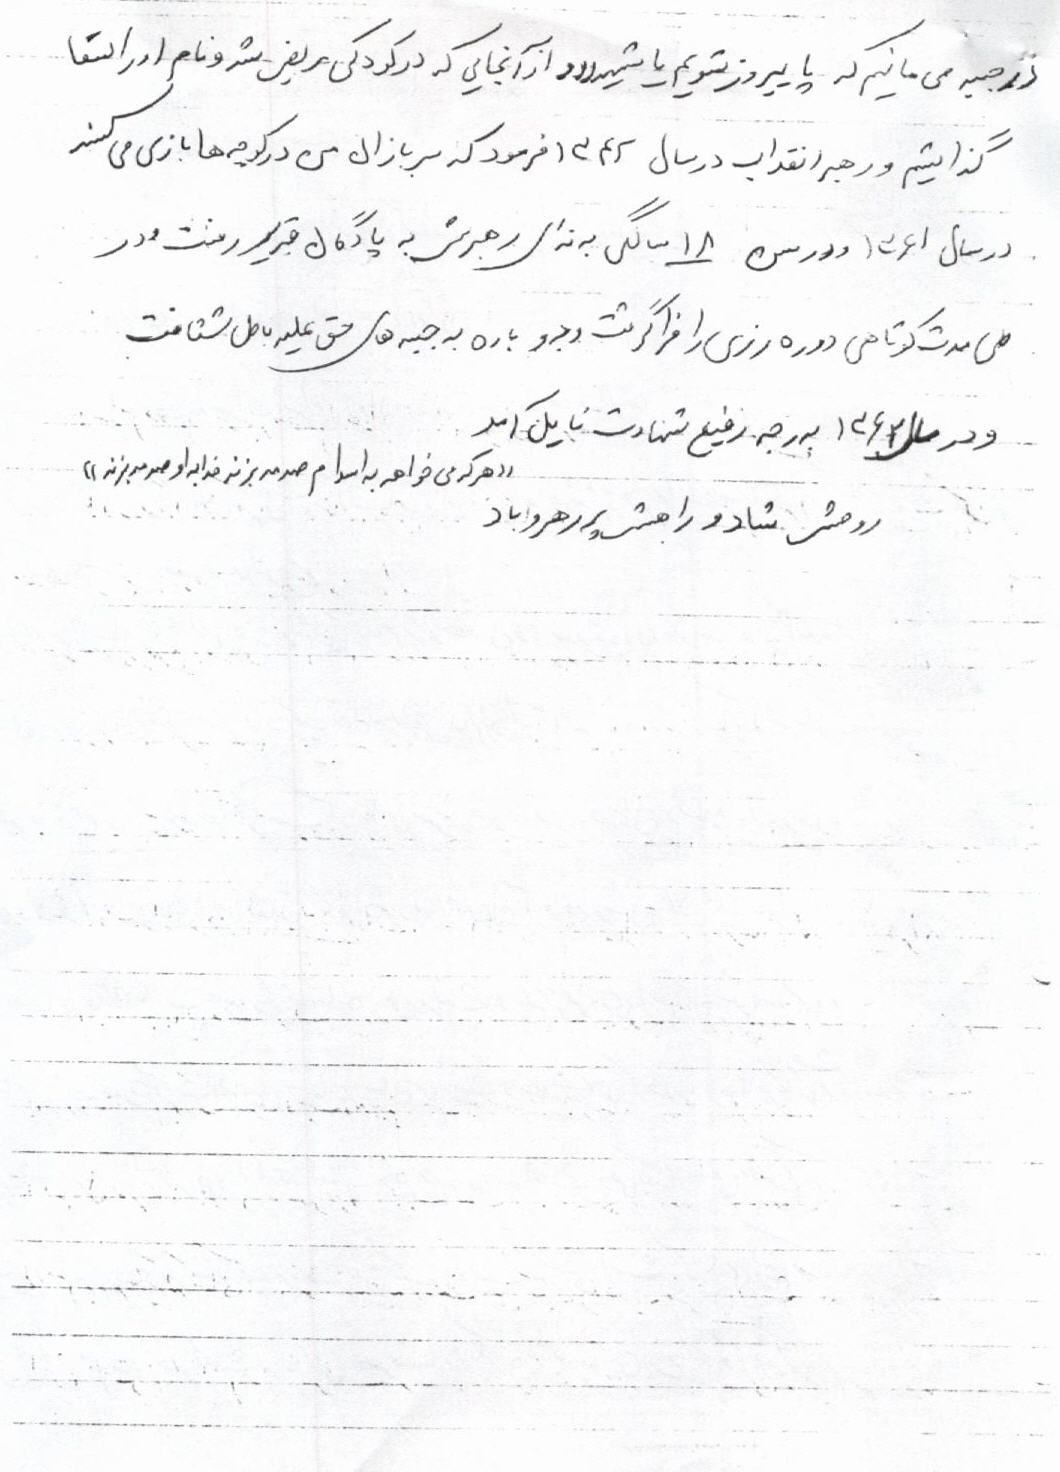 در جبهه می مانیم که یا پیروز شویم یا شهید)) از آنجایی که در کودکی مریض شد و نام او را
گذاشتیم و رهبر انقلاب در سال ۱۳۴۲ فرمود که سربازان من در کوچه ها بازی می کنند
در سال ۱۳۶۱ و در سن ۱۸ سالگی به ندای رهبرش به پادگان رفت و در
طی مدت کوتاهی دوره رزمی را فرا گرفت و دوباره به جبهه های حق علیه باطل شتافت
و در سال ۱۳۶۲ به درجه رفیع شهادت نایل آمد
((هر که می خواهد به اسلام صدمه بزند خدا به او صدمه بزند))
روحش شاد و راهش پر رهرو باد